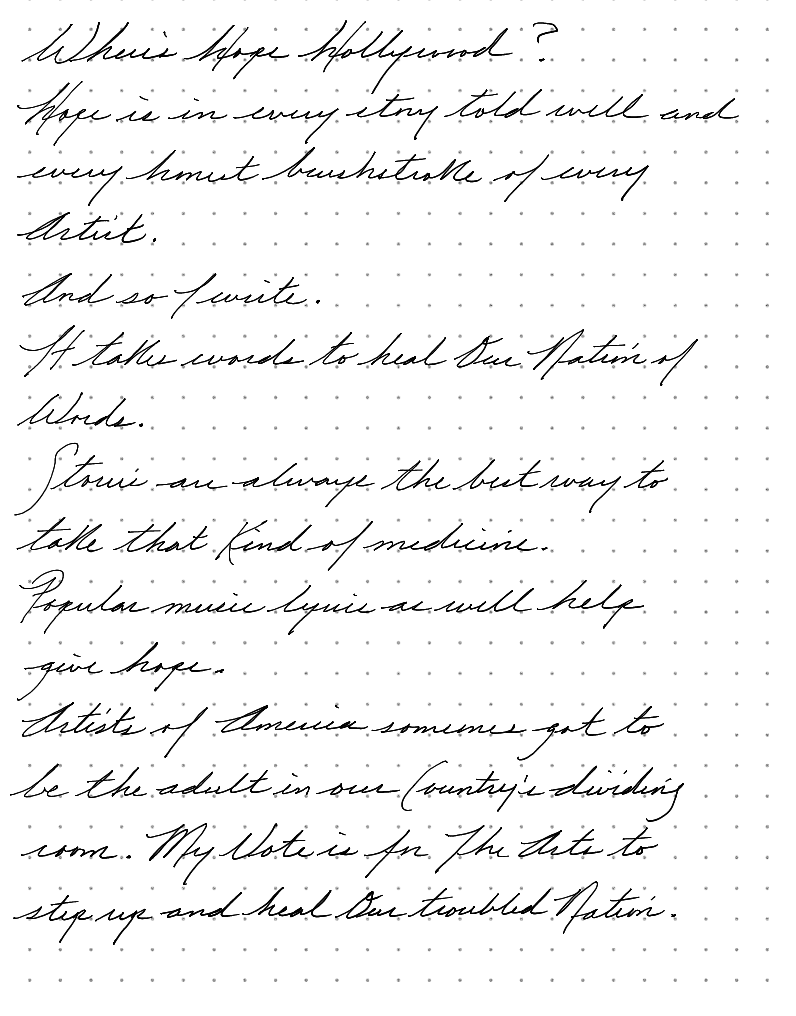 Where's Hope Hollywood ?
Hope is in every story told well and
every honest brushstroke of every
Artist.
And so I write.
It takes words to heal Our Nation of
Words.
Stories are always the best way to
take that Kind of medicine.
Popular music lyrics as well help
give hope.
Artists of America someones got to
be the adult in our Country's dividing
room. My Vote is for The Arts to
step up and heal Our troubled Nation.